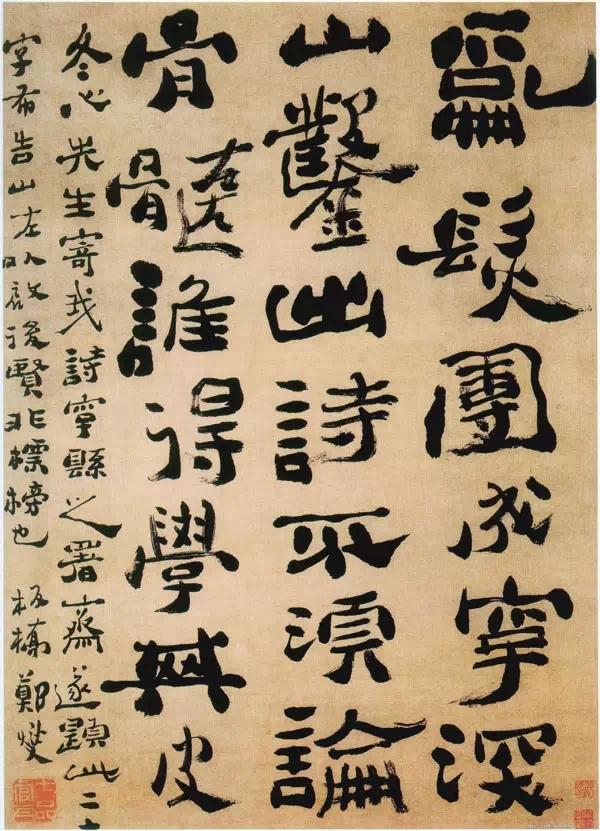 亂髮團成字深
山鑿出詩不須論
骨髓誰得學其皮
冬心先生寄我詩字縣之署齋遂題此二十
字布告山左以啟後賢非標榜也 板橋鄭燮
七品官耳